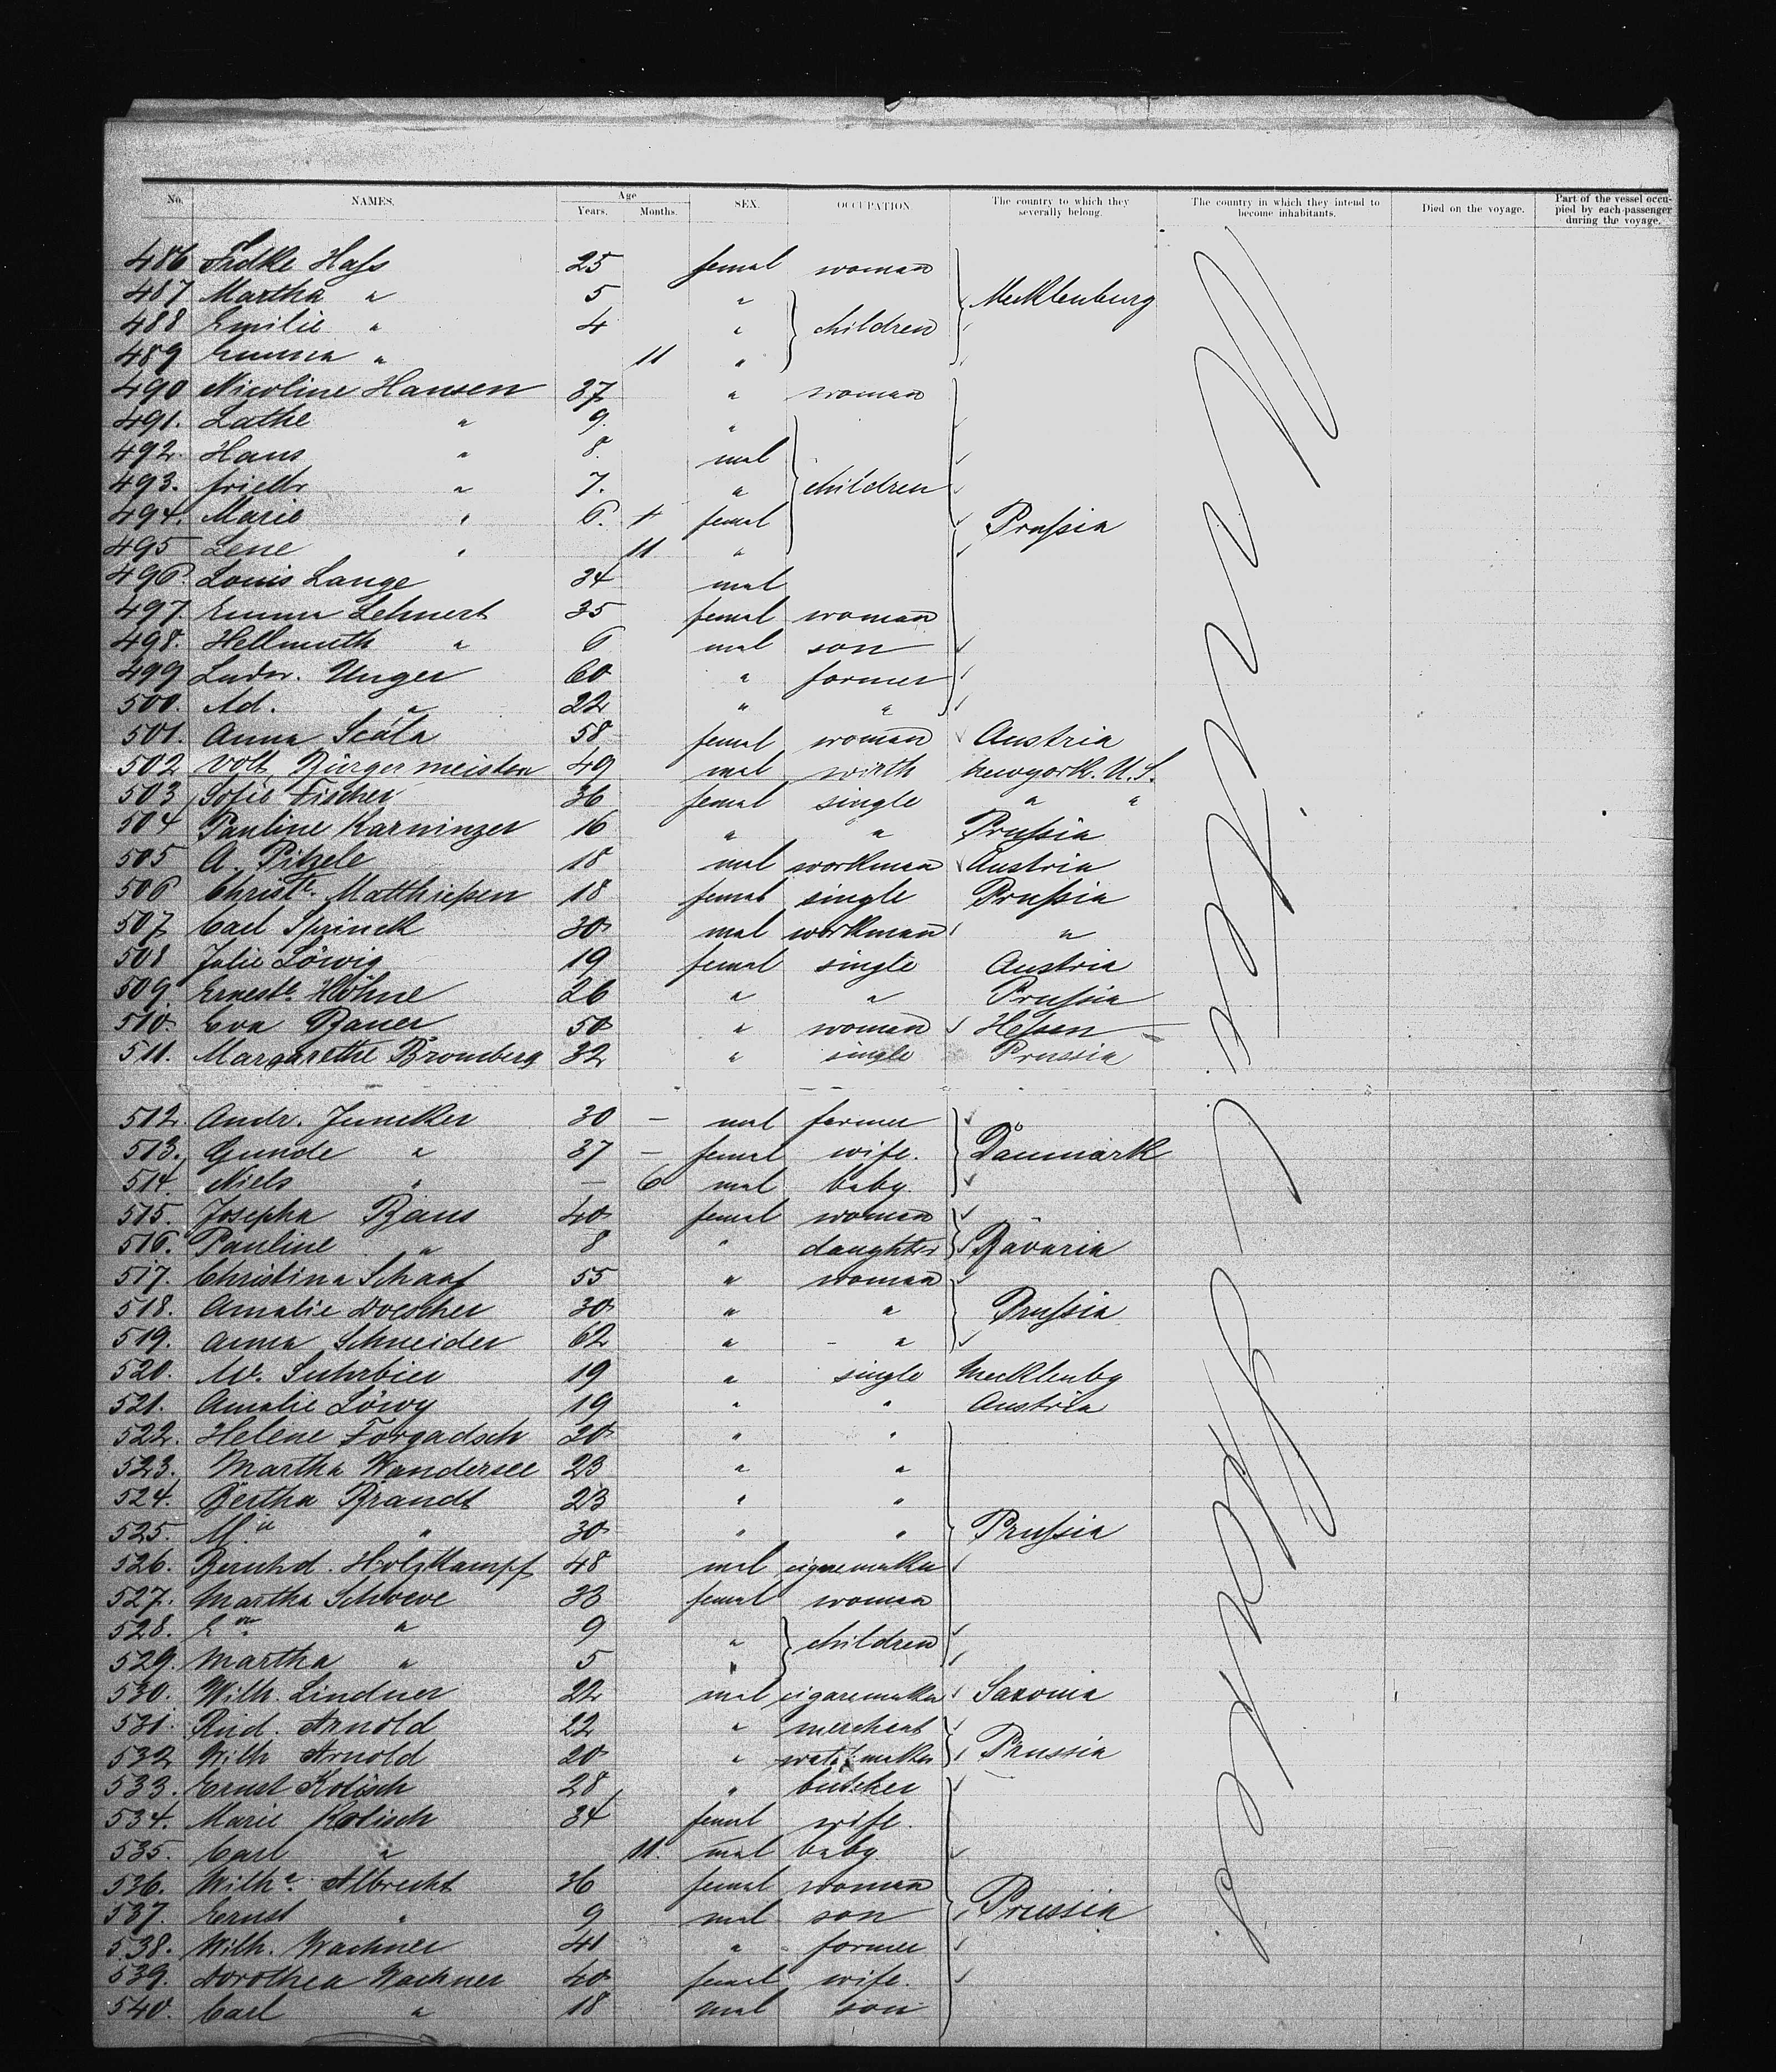 No. NAMES. Age Years. Months. SEX. OCCUPATION The country to which they severally belong. The country in which they intend to become inhabitants. Died on the voyage. Part of the vessel occupied by each passenger during the voyage.
486 Haſs 25 femal woman
487 Martha " 5 " Mecklenburg
488 Emilie " 4 " children
489 Emma " 11 "
490 Nicoline Hansen 37 " woman
491. Lathe " 9. "
492. Hans " 8. mal
493. friedr " 7. " children
494. Marie " 6. femal Pruſsia
495 Lene " 11 "
496. Louis Lange 34 mal
497. Emma Lehnert 35 femal woman
498. Hellmuth " 6 mal son
499 Ludw. Unger 60 " farmer
500. Ad. " 22 " "
501. Anna Scala 58 femal woman Austria
502 Volt. Bürgermeister 49 mal wirth Newyork. U.S.
503 Sofie Fischer 36 femal single " "
504 Pauline Karninzer 16 " " Pruſsia
505 A. Pitzele 18 mal workman Austria
506 Christe. Matthieſsen 18 femal single Pruſsia
507 Carl Sprinck 30 mal workman "
508 Julie Löwig 19 femal single Austria
509. Erneste. Höhne 26 " " Pruſsia
510. Eva Bauer 50 " woman Heſsen
511. Margarethe Bromberg 32 " single Prussia
512. Andr. Juncker 30 — mal farmer
513. Gunde " 37 — femal wife. Dänmark
514. Niels " — 6 mal baby.
515. Josepha Baus 40 femal woman
516. Pauline " 8 " daughter Bavaria
517. Christina Schaaf 55 " woman
518. Amalie Doescher 30 " " Pruſsia
519. Anna Schneider 62 " "
520. W. Suhrbier 19 " single Mecklenbg
521. Amalie Löwy 19 " " Austria
522. Helene Forgadsch 20 " "
523. Martha Wandersee 23 " "
524. Bertha Brandt 23 " "
525. M. " 30 " " Pruſsia
526. Bernhd. Holzkampf 48 mal cigaremaker
527. Martha Schweve 33 femal woman
528. Em. " 9 " children
529. Martha " 5 "
530. Wilh. Lindner 22 mal cigaremaker Saxonia
531. Rud. Arnold 22 " merchant
532 Wilh Arnold 20 " watchmaker Prussia
533. Ernst Kolisch 28 " butcher
534. Marie Kolisch 34 femal wife.
535. Carl " 11. mal baby
536. Wilhe. Albrecht 36 femal woman
537. Ernst " 9 mal son Prussia
538. Wilh. Wachner 41 " farmer
539. Dorothea Wachner 40 femal wife.
540. Carl " 18 mal son